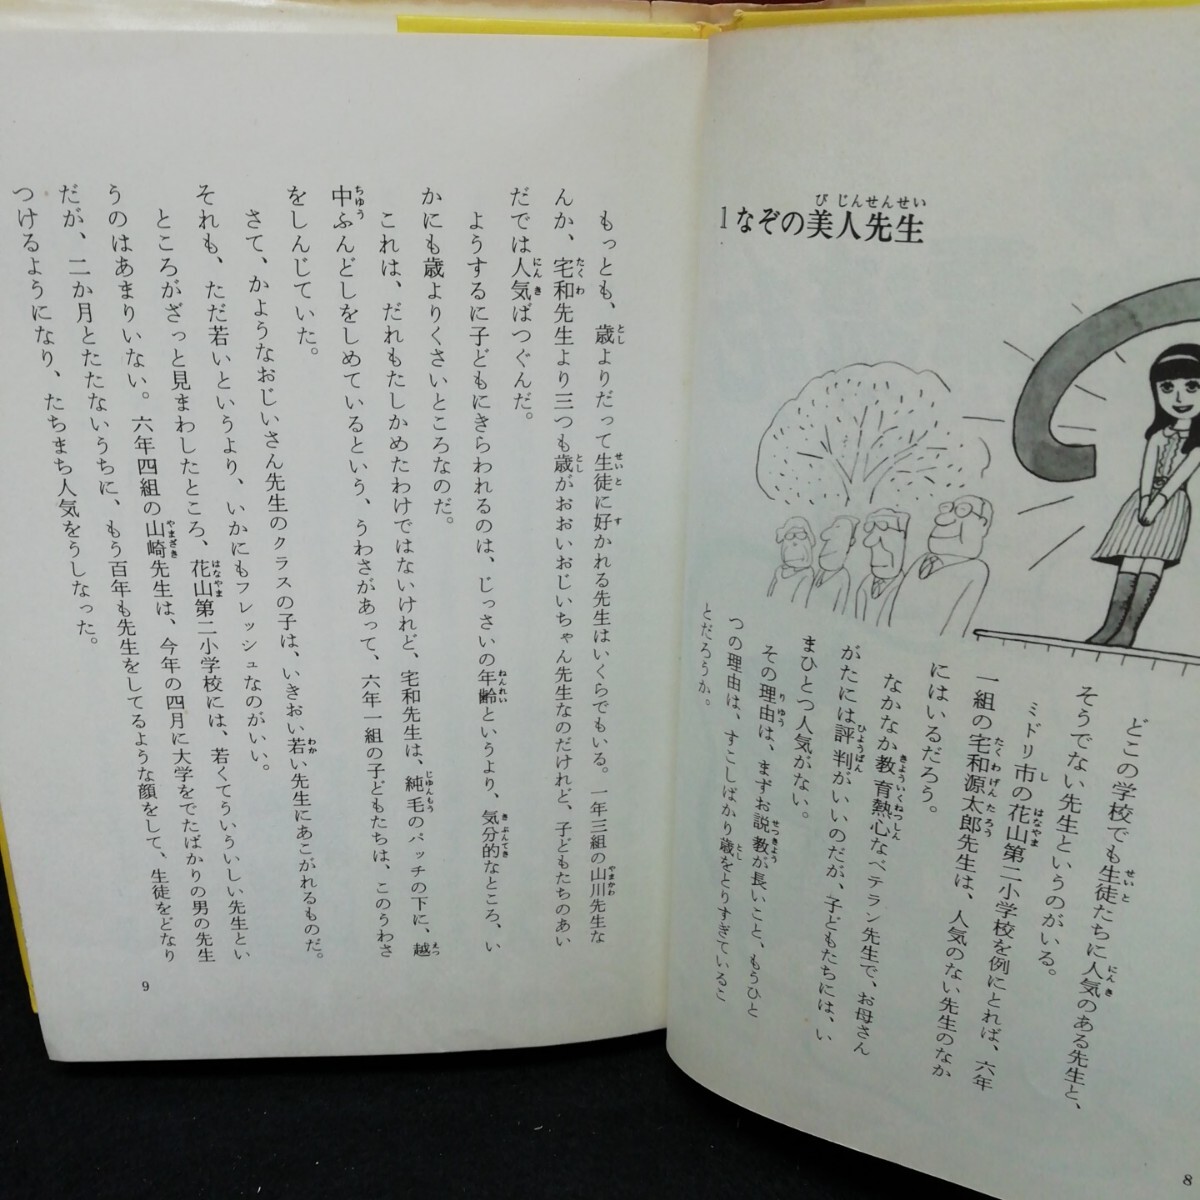 1なぞの美人先生
びじんせんせい
どこの学校でも生徒たちに人気のある先生と、
そうでない先生というのがいる。
ミドリ市の花山第二小学校を例にとれば、六年
一組の宅和源太郎先生は、人気のない先生のなか
にはいるだろう。
なかなか教育熱心なベテラン先生で、お母さん
がたには評判がいいのだが、子どもたちには、い
まひとつ人気がない。
その理由は、まずお説教が長いこと、もうひと
つの理由は、すこしばかり歳をとりすぎているこ
とだろうか。
8
もっとも、歳よりだって生徒に好かれる先生はいくらでもいる。一年三組の山川先生な
んか、宅和先生より三つも歳がおおいおじいちゃん先生なのだけれど、子どもたちのあい
だでは人気ばつぐんだ。
ようするに子どもにきらわれるのは、じっさいの年齢というより、気分的なところ、い
かにも歳よりくさいところなのだ。
これは、だれもたしかめたわけではないけれど、宅和先生は、純毛のパッチの下に、越
中ふんどしをしめているという、うわさがあって、六年一組の子どもたちは、このうわさ
をしんじていた。
さて、かようなおじいさん先生のクラスの子は、いきおい若い先生にあこがれるものだ。
それも、ただ若いというより、いかにもフレッシュなのがいい。
ところがざっと見まわしたところ、花山第二小学校には、若くてういういしい先生とい
うのはあまりいない。六年四組の山崎先生は、今年の四月に大学をでたばかりの男の先生
だが、二か月とたたないうちに、もう百年も先生をしてるような顔をして、生徒をどなり
つけるようになり、たちまち人気をうしなった。
9